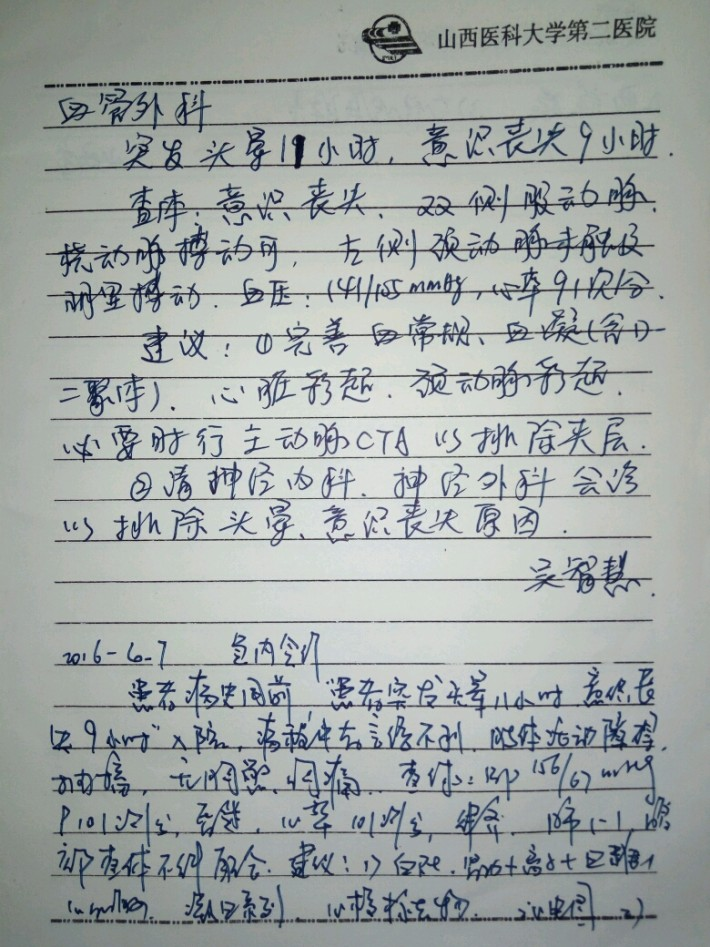 山西医科大学第二医院
血管外科
突发头晕11小时，意识丧失9小时.
查体：意识丧失、双侧股动脉、
桡动脉搏动可，左侧颈动脉未触及
明显搏动. 血压：141/105mmHg，心率91次/分.
建议：①完善血常规、血凝(含D-
二聚体)、心脏彩超、颈动脉彩超.
必要时行主动脉CTA以排除夹层.
②请神经内科、神经外科会诊
以排除头晕、意识丧失原因.
吴智慧.
2016-6-7 会诊
患者病史同前 "患者突发头晕11小时 意识丧
失9小时"入院. 病程中有言语不利、肢体活动障碍
抽搐，无胸闷、胸痛. 查体：BP 156/67mmHg
P 101次/分，心率101次/分，律齐.
查体不能配合. 建议：1)
心电图 2)